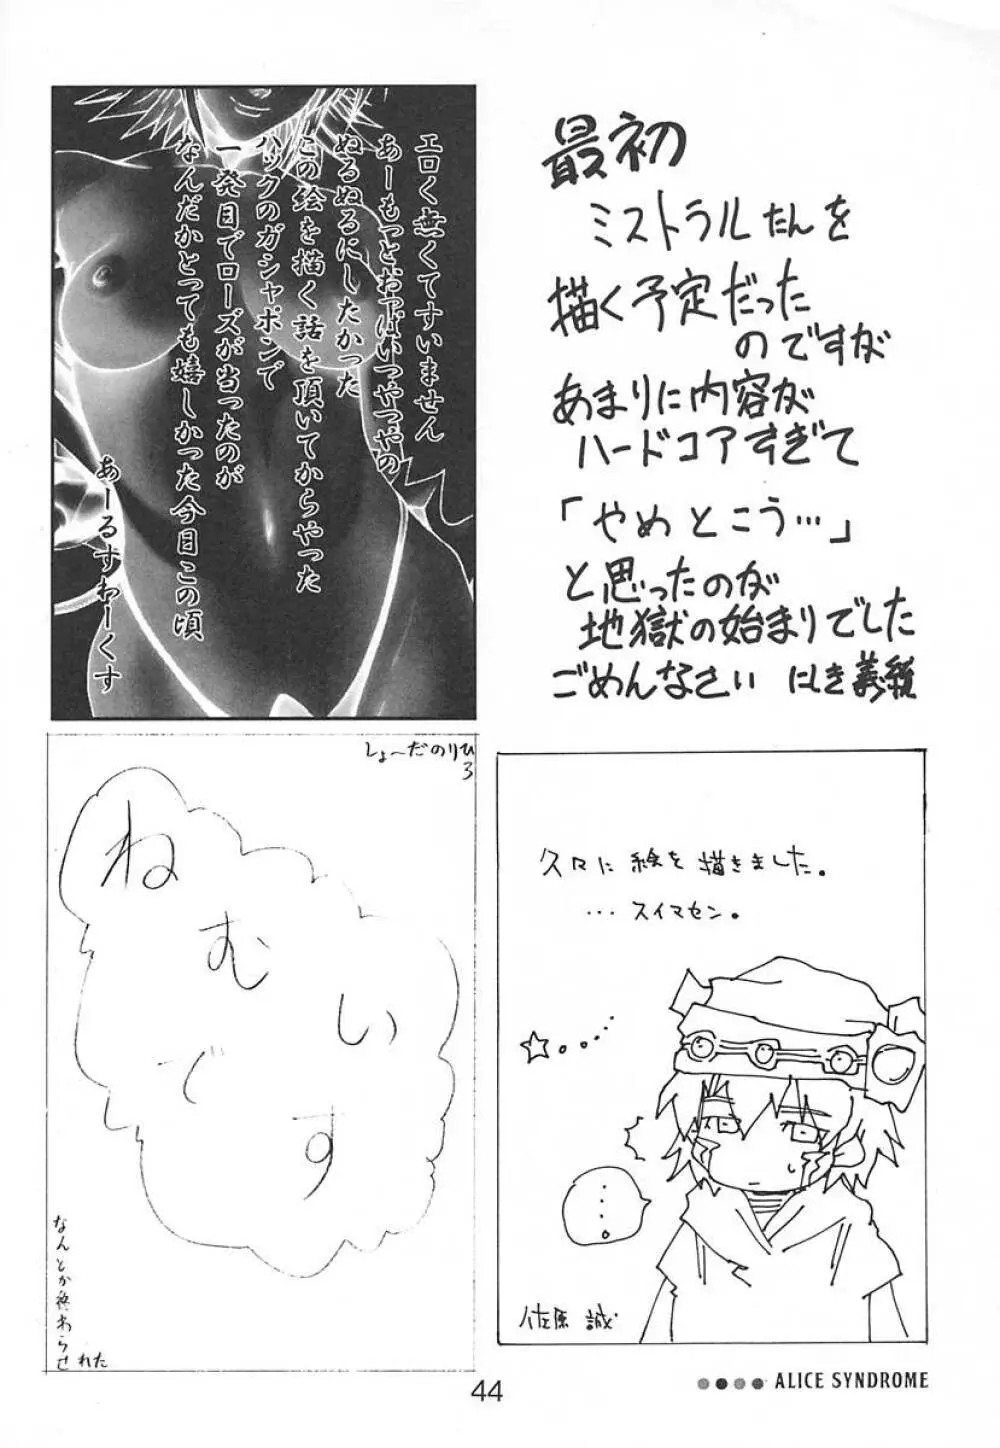 エロく無くてすいません
あーもっとおっぱいつやつやの
ぬるぬるにしたかった
この絵を描く話を頂いてからやった
ハックのガシャポンで
一発目でローズが当ったのが
なんだかとっても嬉しかった今日この頃
あーるすわーくす
最初
ミストラルたんを
描く予定だった
のですが
あまりに内容が
ハードコアすぎて
「やめとこう…」
と思ったのが
地獄の始まりでした
ごめんなさい にしき義統
しょ〜だのりひろ
ねむいです
なんとか終わらせれた
久々に絵を描きました。
…スイマセン。
☆。。……
…。
佐原 誠
44
ALICE SYNDROME